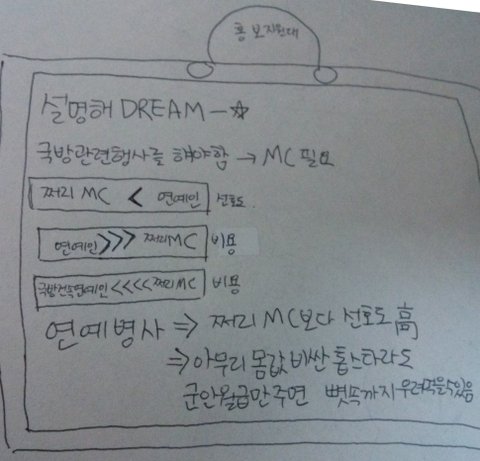 홍보지원대
설명해 DREAM-☆
국방관련행사를 해야함 → MC 필요
쩌리 MC < 연예인 선호도
연예인 >>> 쩌리MC 비용
국방전속연예인 <<<< 쩌리MC 비용
연예병사 ⇒ 쩌리 MC보다 선호도 高
⇒ 아무리 몸값 비싼 톱스타라도
군인월급만 주면 뼛속까지 우려먹을수있음